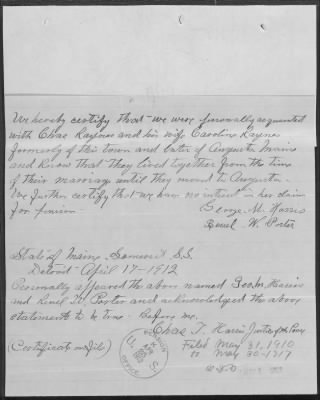 We hereby certify that we were personally acquainted
with Chas Raynes and his wife Caroline Raynes
formerly of this town and later of Augusta Maine
and know that they lived together from the time
of their marriage until they moved to Augusta.
We further certify that we have no interest in her claim
for pension.
George M. Harris
W. Porter
State of Maine Somerset S.S.
Detroit April 17-1912
Personally appeared the above named Geo M. Harris
and W. Porter and acknowledged the above
statements to be true. Before me.
Chas T. Harris Justice of the Peace
(Certificate on file)
Filed May 31, 1910
May 30-1917
U. S.
PENSION
OFFICE